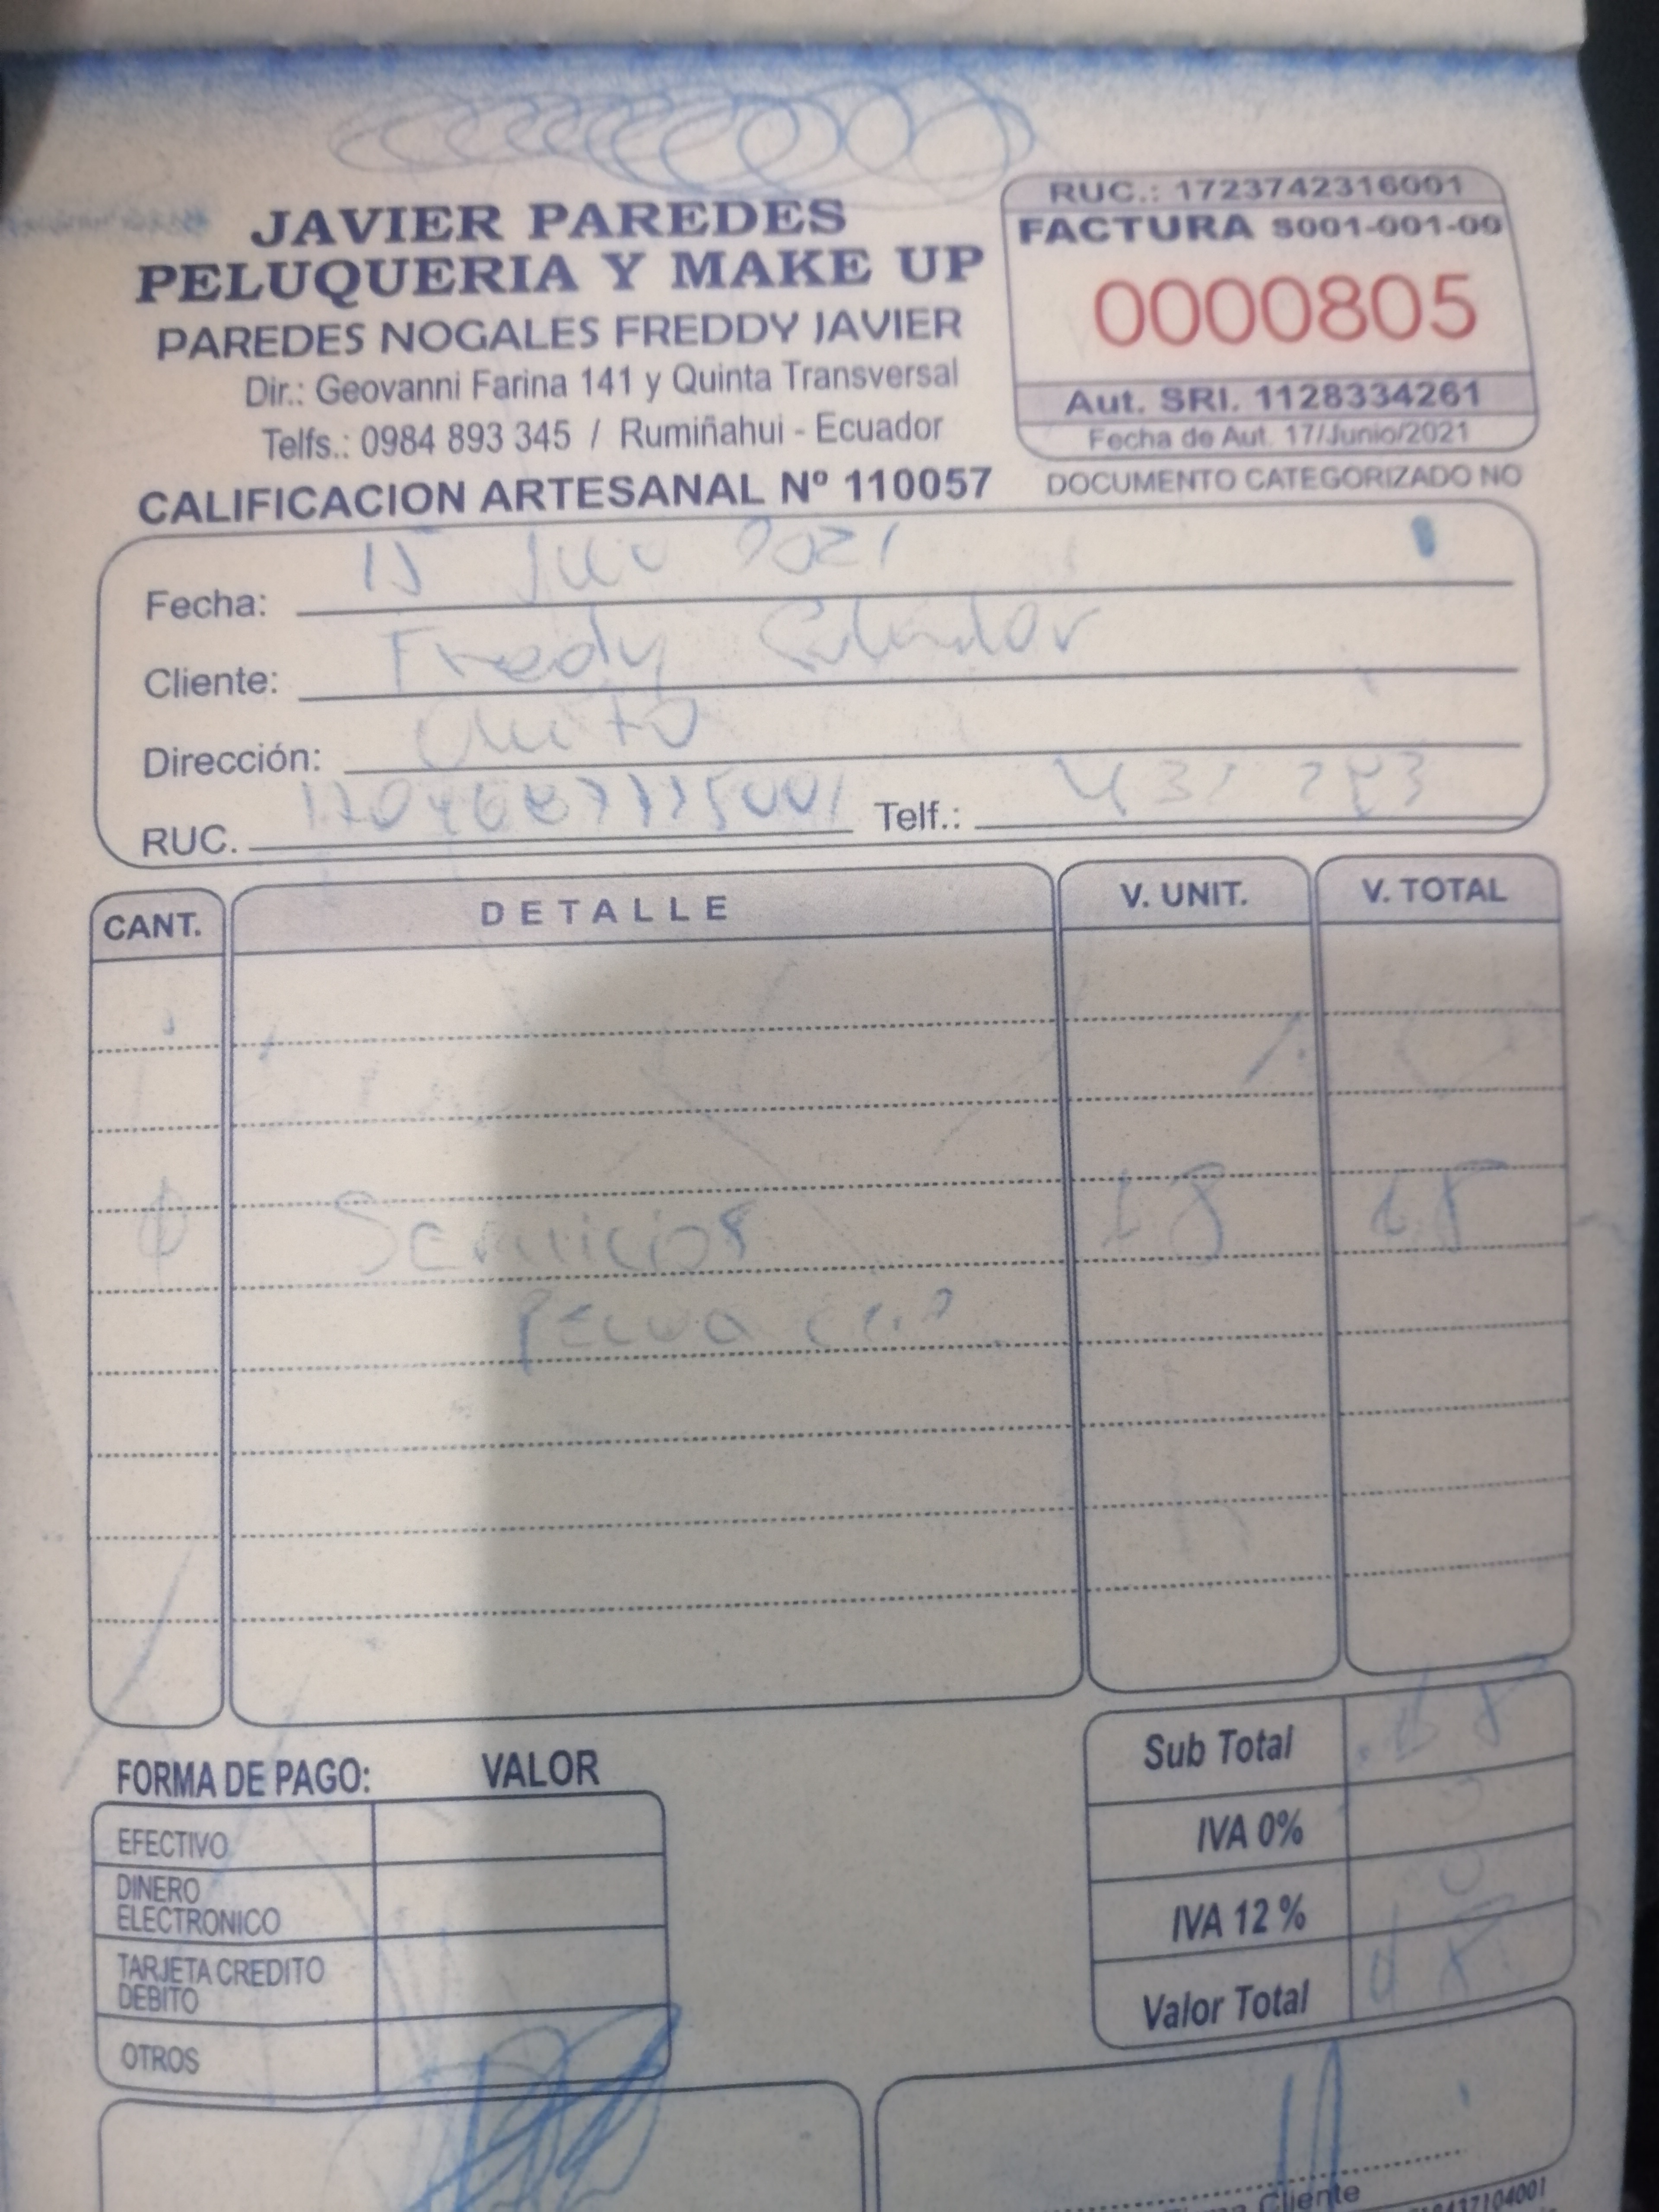 JAVIER PAREDES
PELUQUERIA Y MAKE UP
PAREDES NOGALES FREDDY JAVIER
Dir.: Geovanni Farina 141 y Quinta Transversal
Telfs.: 0984 893 345 / Rumiñahui - Ecuador
CALIFICACION ARTESANAL Nº 110057
RUC.: 1723742316001
FACTURA S001-001-00
0000805
Aut. SRI. 1128334261
Fecha de Aut. 17/Junio/2021
DOCUMENTO CATEGORIZADO NO
Fecha: 15 Julio 2021
Cliente: Fredy
Dirección: Quito
RUC. Telf.:
CANT. DETALLE V. UNIT. V. TOTAL
Servicios 18 18
FORMA DE PAGO: VALOR
EFECTIVO
DINERO
ELECTRONICO
TARJETA CREDITO
DEBITO
OTROS
Sub Total 18
IVA 0%
IVA 12 %
Valor Total 18
Cliente